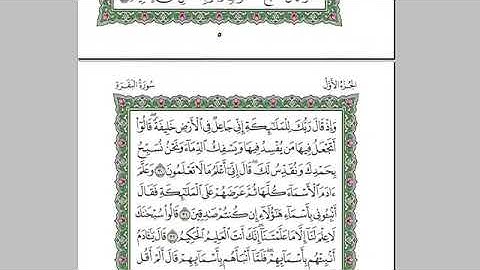 ٥
سُورَةُ البَقَرَةِ
الجُزءُ الأَوَّلُ
وَإِذۡ قَالَ رَبُّكَ لِلۡمَلَٰٓئِكَةِ إِنِّي جَاعِلٞ فِي ٱلۡأَرۡضِ خَلِيفَةٗۖ قَالُوٓاْ
أَتَجۡعَلُ فِيهَا مَن يُفۡسِدُ فِيهَا وَيَسۡفِكُ ٱلدِّمَآءَ وَنَحۡنُ نُسَبِّحُ
بِحَمۡدِكَ وَنُقَدِّسُ لَكَۖ قَالَ إِنِّيٓ أَعۡلَمُ مَا لَا تَعۡلَمُونَ ٣٠ وَعَلَّمَ
ءَادَمَ ٱلۡأَسۡمَآءَ كُلَّهَا ثُمَّ عَرَضَهُمۡ عَلَى ٱلۡمَلَٰٓئِكَةِ فَقَالَ
أَنۢبِـُٔونِي بِأَسۡمَآءِ هَٰٓؤُلَآءِ إِن كُنتُمۡ صَٰدِقِينَ ٣١ قَالُواْ سُبۡحَٰنَكَ
لَا عِلۡمَ لَنَآ إِلَّا مَا عَلَّمۡتَنَآۖ إِنَّكَ أَنتَ ٱلۡعَلِيمُ ٱلۡحَكِيمُ ٣٢ قَالَ يَٰٓـَٔادَمُ
أَنۢبِئۡهُم بِأَسۡمَآئِهِمۡۖ فَلَمَّآ أَنۢبَأَهُم بِأَسۡمَآئِهِمۡ قَالَ أَلَمۡ أَقُل